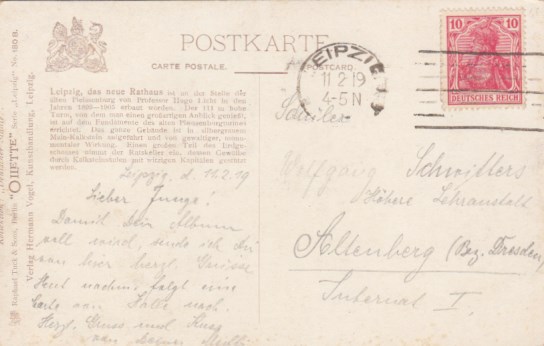 POSTKARTE
CARTE POSTALE. POSTCARD.
LEIPZIG
11 2 19
4-5 N
10 10
DEUTSCHES REICH
Leipzig, das neue Rathaus ist an der Stelle der
alten Pleissenburg von Professor Hugo Licht in den
Jahren 1899—1905 erbaut worden. Der 111 m hohe
Turm, von dem man einen großartigen Anblick genießt,
ist auf den Fundamenten des alten Pleissenburgturmes
errichtet. Das ganze Gebäude ist in silbergrauem
Main-Kalkstein aufgeführt und von gewaltiger, monu-
mentaler Wirkung. Einen großen Teil des Erdge-
schosses nimmt der Ratskeller ein, dessen Gewölbe
durch Kalksteinsäulen mit würzigen Kapitälen gestützt
werden.
Leipzig, d. 11.2.19
Lieber Junge!
Damit Dein Album
voll wird, sende ich Dir
von hier herzl. Grüsse
Heut nachm. folgt eine
Carte von Halle nach.
Herzl. Gruss und Kuss
von Deiner
Schüler
Wolfgang Schwitters
Höhere Lehranstalt
Altenberg (Bez. Dresden)
Internat I.
Raphael Tuck & Sons, Berlin "OILETTE" Serie „Leipzig" No. 690 B.
Verlag Hermann Vogel, Kunsthandlung, Leipzig.